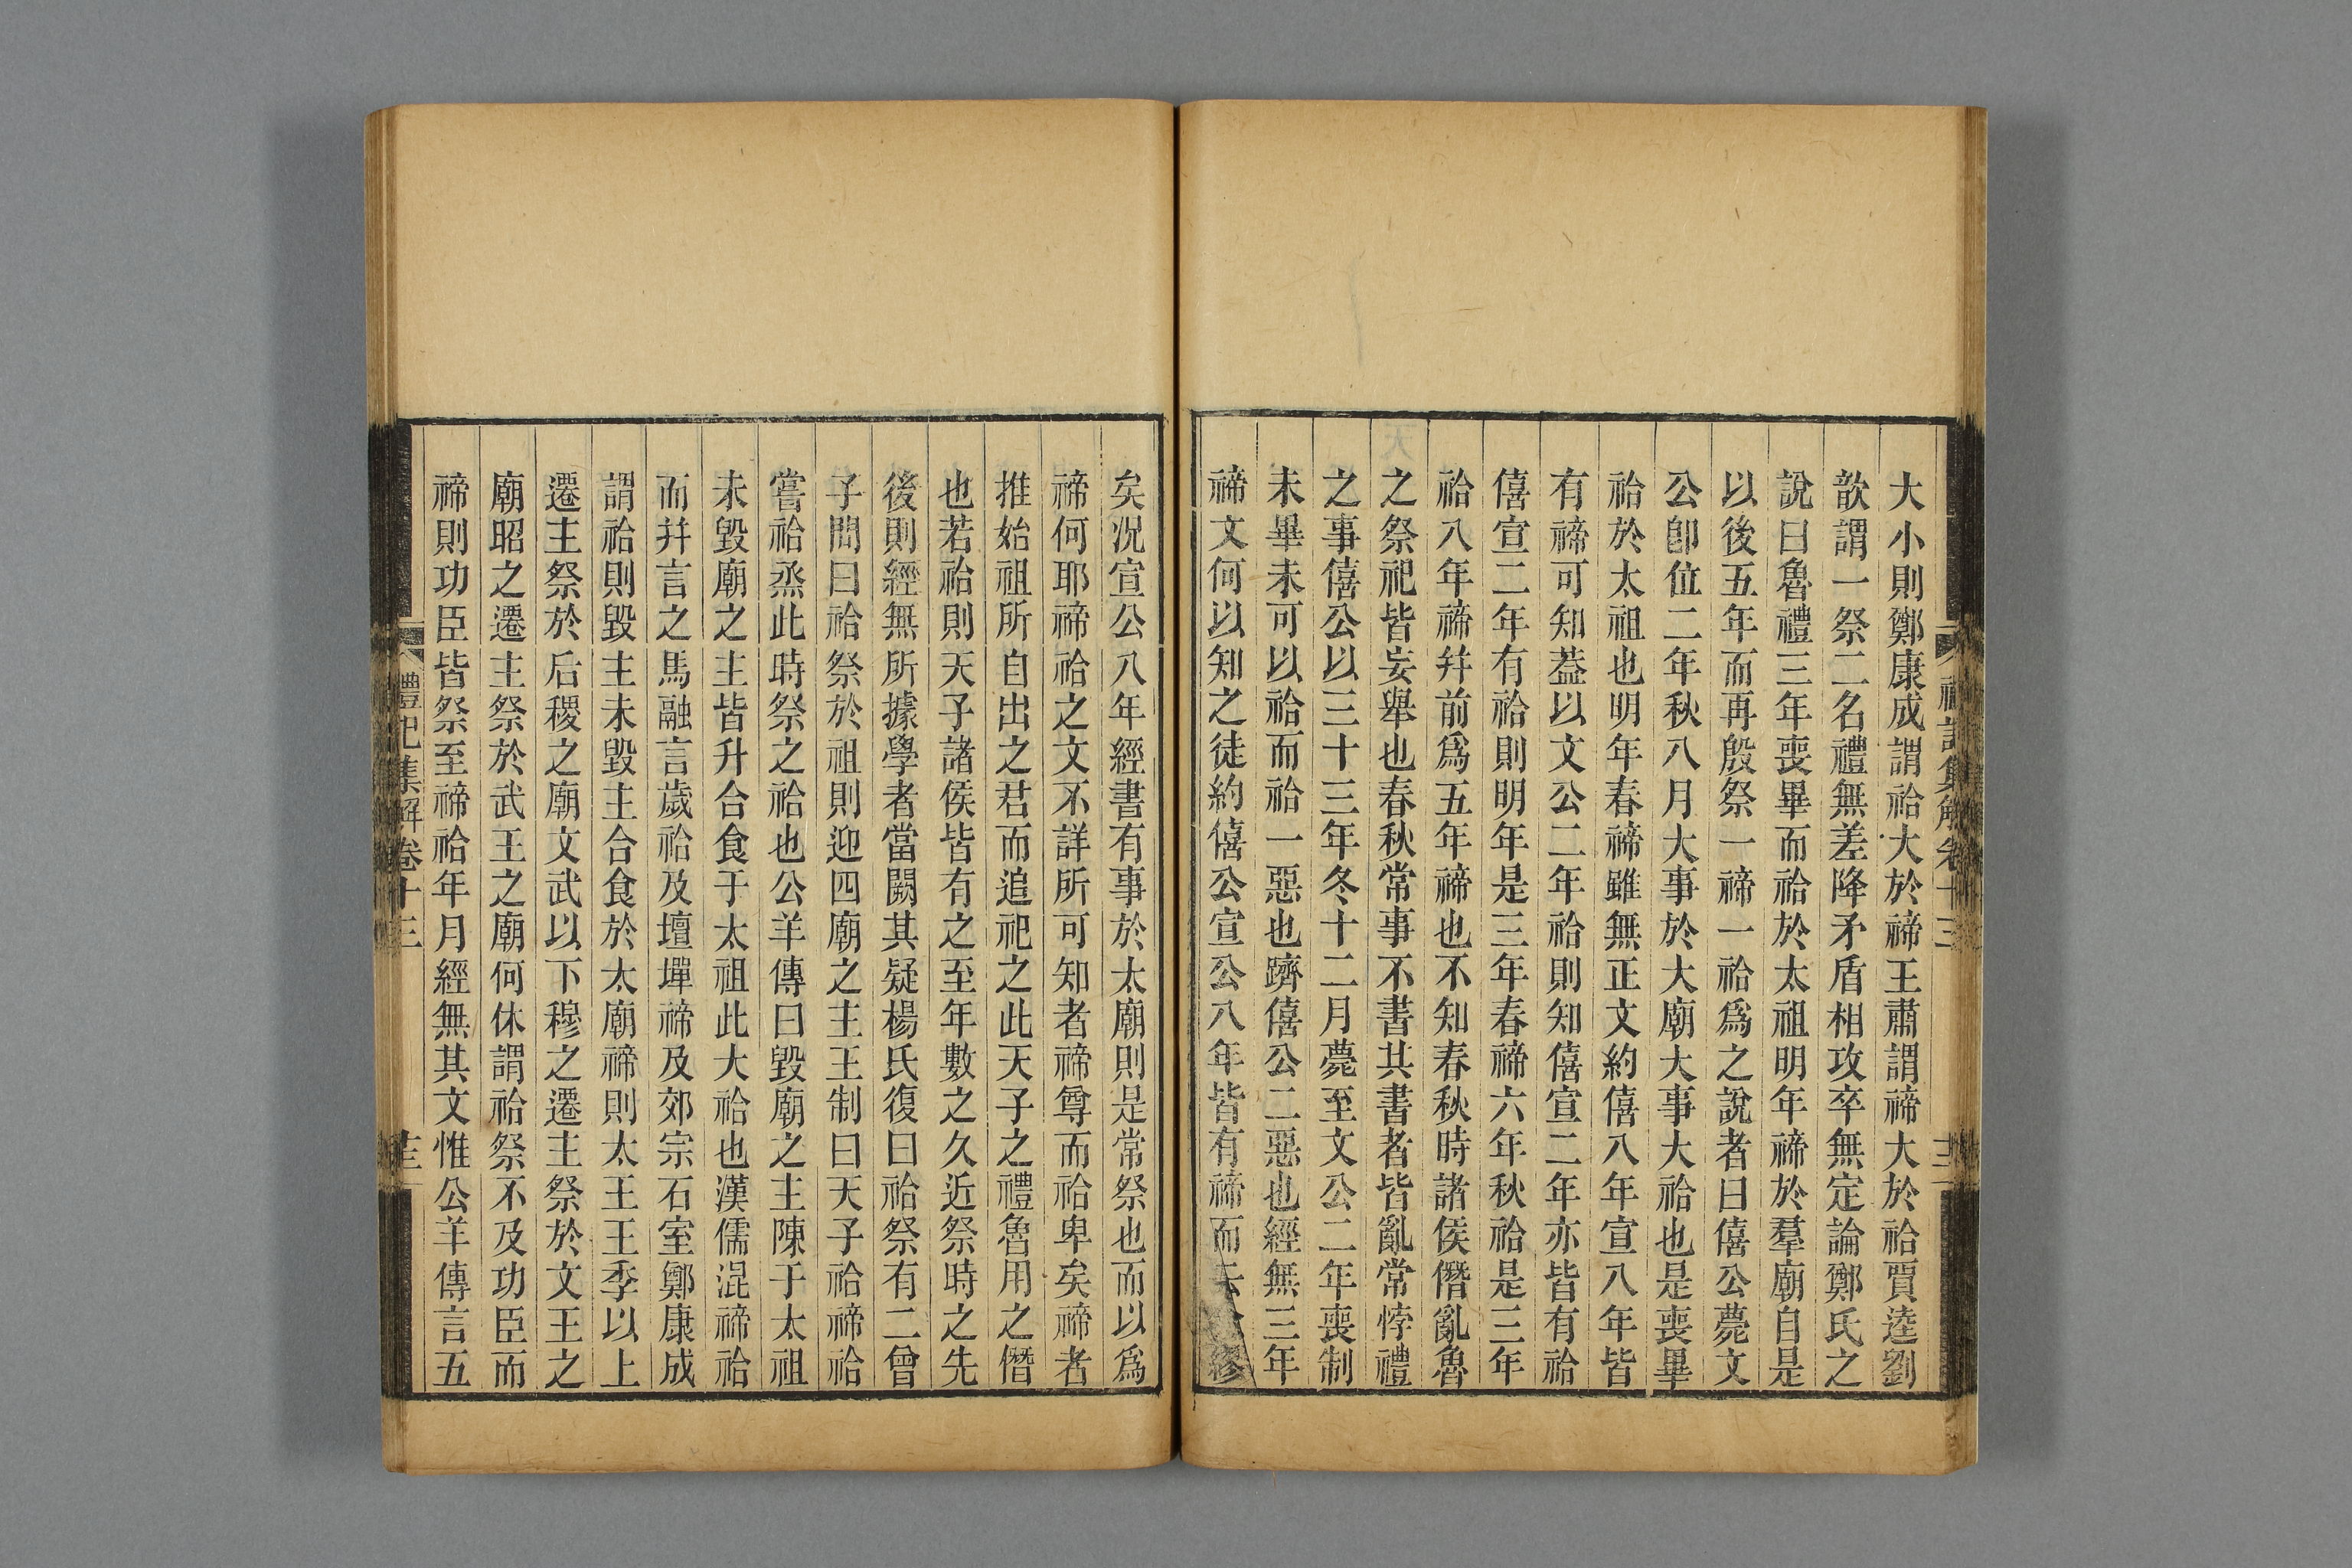 大小則鄭康成謂祫大於禘王肅謂禘大於祫賈逵劉
歆謂一祭二名禮無差降矛盾相攻卒無定論鄭氏之
說曰魯禮三年喪畢而祫於太祖明年禘於羣廟自是
以後五年而再殷祭一禘一祫爲之說者曰僖公薨文
公卽位二年秋八月大事於大廟大事大祫也是喪畢
祫於太祖也明年春禘雖無正文約僖八年宣八年皆
有禘可知葢以文公二年祫則知僖宣二年亦皆有祫
僖宣二年有祫則明年是三年春禘六年秋祫是三年
祫八年禘幷前爲五年禘也不知春秋時諸侯僭亂魯
之祭祀皆妄舉也春秋常事不書其書者皆亂常悖禮
之事僖公以三十三年冬十二月薨至文公二年喪制
未畢未可以祫而祫一惡也躋僖公二惡也經無三年
禘文何以知之徒約僖公宣公八年皆有禘而云繆
矣況宣公八年經書有事於太廟則是常祭也而以爲
禘何耶禘祫之文不詳所可知者禘尊而祫卑矣禘者
推始祖所自出之君而追祀之此天子之禮魯用之僭
也若祫則天子諸侯皆有之至年數之久近祭時之先
後則經無所據學者當闕其疑楊氏復曰祫祭有二曾
子問曰祫祭於祖則迎四廟之主王制曰天子祫禘祫
嘗祫烝此時祭之祫也公羊傳曰毀廟之主陳于太祖
未毀廟之主皆升合食于太祖此大祫也漢儒混禘祫
而幷言之馬融言歲祫及壇墠禘及郊宗石室鄭康成
謂祫則毀主未毀主合食於太廟禘則太王王季以上
遷主祭於后稷之廟文武以下穆之遷主祭於文王之
廟昭之遷主祭於武王之廟何休謂祫祭不及功臣而
禘則功臣皆祭至禘祫年月經無其文惟公羊傳言五
禮記集解卷十三